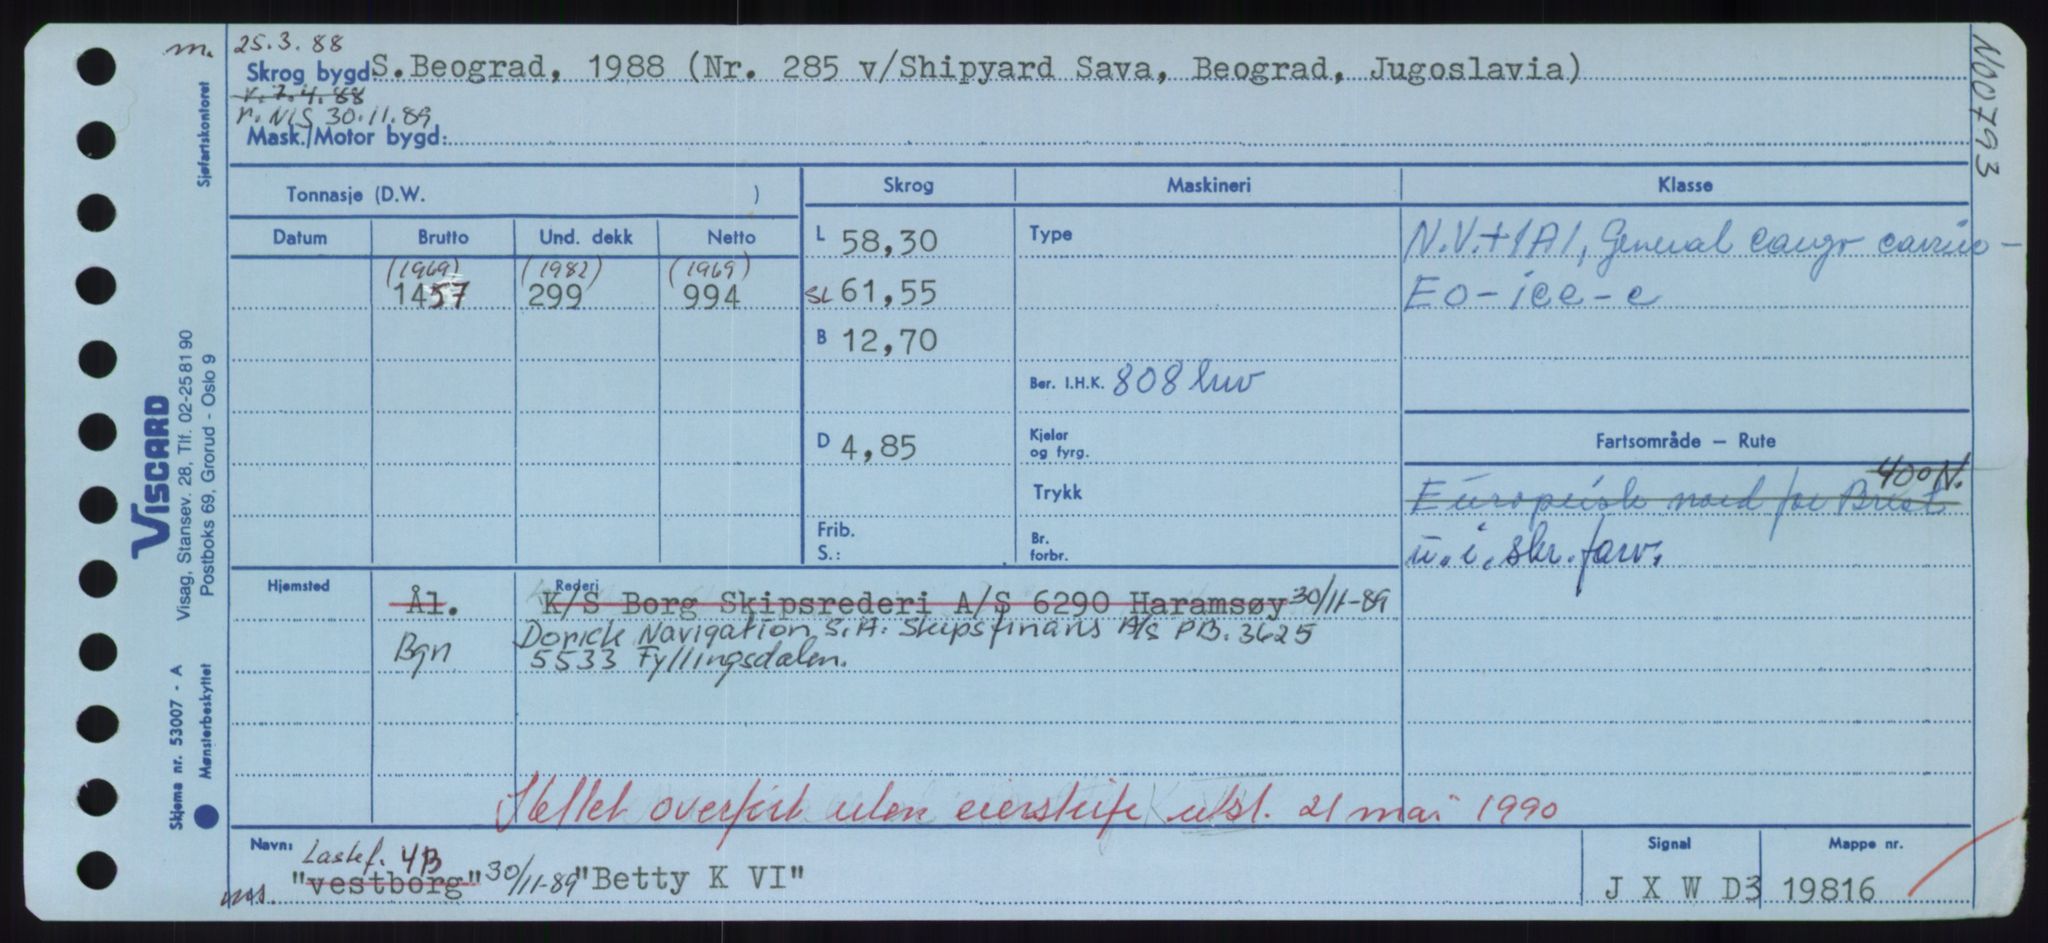 m. 25.3.88
Skrog bygd S.Beograd, 1988 (Nr. 285 v/Shipyard Sava, Beograd, Jugoslavia)
v. 7.4.88
r. NIS 30.11.89
Mask./Motor bygd:
N00793
Sjøfartskontoret
Tonnasje (D.W. )
Skrog Maskineri Klasse
Datum Brutto Und. dekk Netto
L 58,30 Type N.V.+1A1, General cargo carrier-
(1969) (1982) (1969)
1457 299 994 SL 61,55 EO-ice-c
B 12,70
Ber. I.H.K. 808 kw
D 4,85 Kjeler og fyrg. Fartsområde — Rute
400N.
Trykk Europeisk nord for Brest
Frib. S.: Br. forbr. u.i. skr. farv.
Hjemsted Rederi
Ål. K/S Borg Skipsrederi A/S 6290 Haramsøy 30/11-89
Bgn Dorick Navigation S.A. Skipsfinans A/S PB. 3625
5533 Fyllingsdalen.
Slettet overført uten eierskifte utsl. 21 mai 1990
Navn: Lastef. 4B Signal Mappe nr.
ms. "Vestborg" 30/11-89 "Betty K VI" J X W D3 19816
VISCARD
Visag, Stansev. 28, Tlf. 02-25 81 90
Postboks 69, Grorud - Oslo 9
Skjema nr. 53007 - A
Mønsterbeskyttet